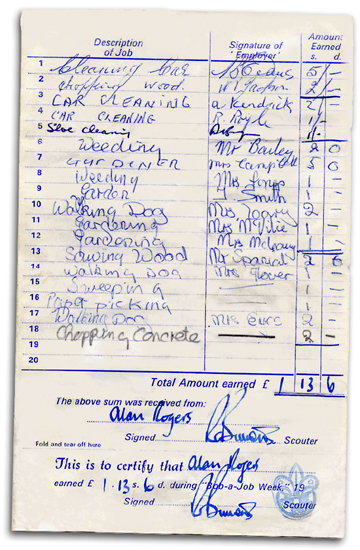 Description of Job Signature of "Employer" Amount Earned s. d.
1 Cleaning Car 5 -
2 chopping wood. 2 -
3 CAR CLEANING a Kendrick 2 -
4 CAR CLEANING R. Royle 1 -
5 Shoe cleaning 1 -
6 Weeding Mr Bailey 2 0
7 GARDENER Mrs Campbell 5 0
8 Weeding Mrs Jones 1 -
9 Garden Smith 1 -
10 Walking Dog Mrs 2 -
11 Gardening Mrs 1 -
12 Gardening Mrs 1 -
13 Sawing Wood Mr 2 6
14 Walking Dog Mrs Glover 1 -
15 Sweeping 1 -
16 Paper picking 1 -
17 Walking Dog Mrs 2 -
18 Chopping Concrete 2 -
19
20
Total Amount earned £ 1 13 6
The above sum was received from:
Alan Rogers
Signed Scouter
Fold and tear off here
This is to certify that Alan Rogers
earned £ 1. 13 s. 6 d. during "Bob-a-Job Week," 19
Signed Scouter